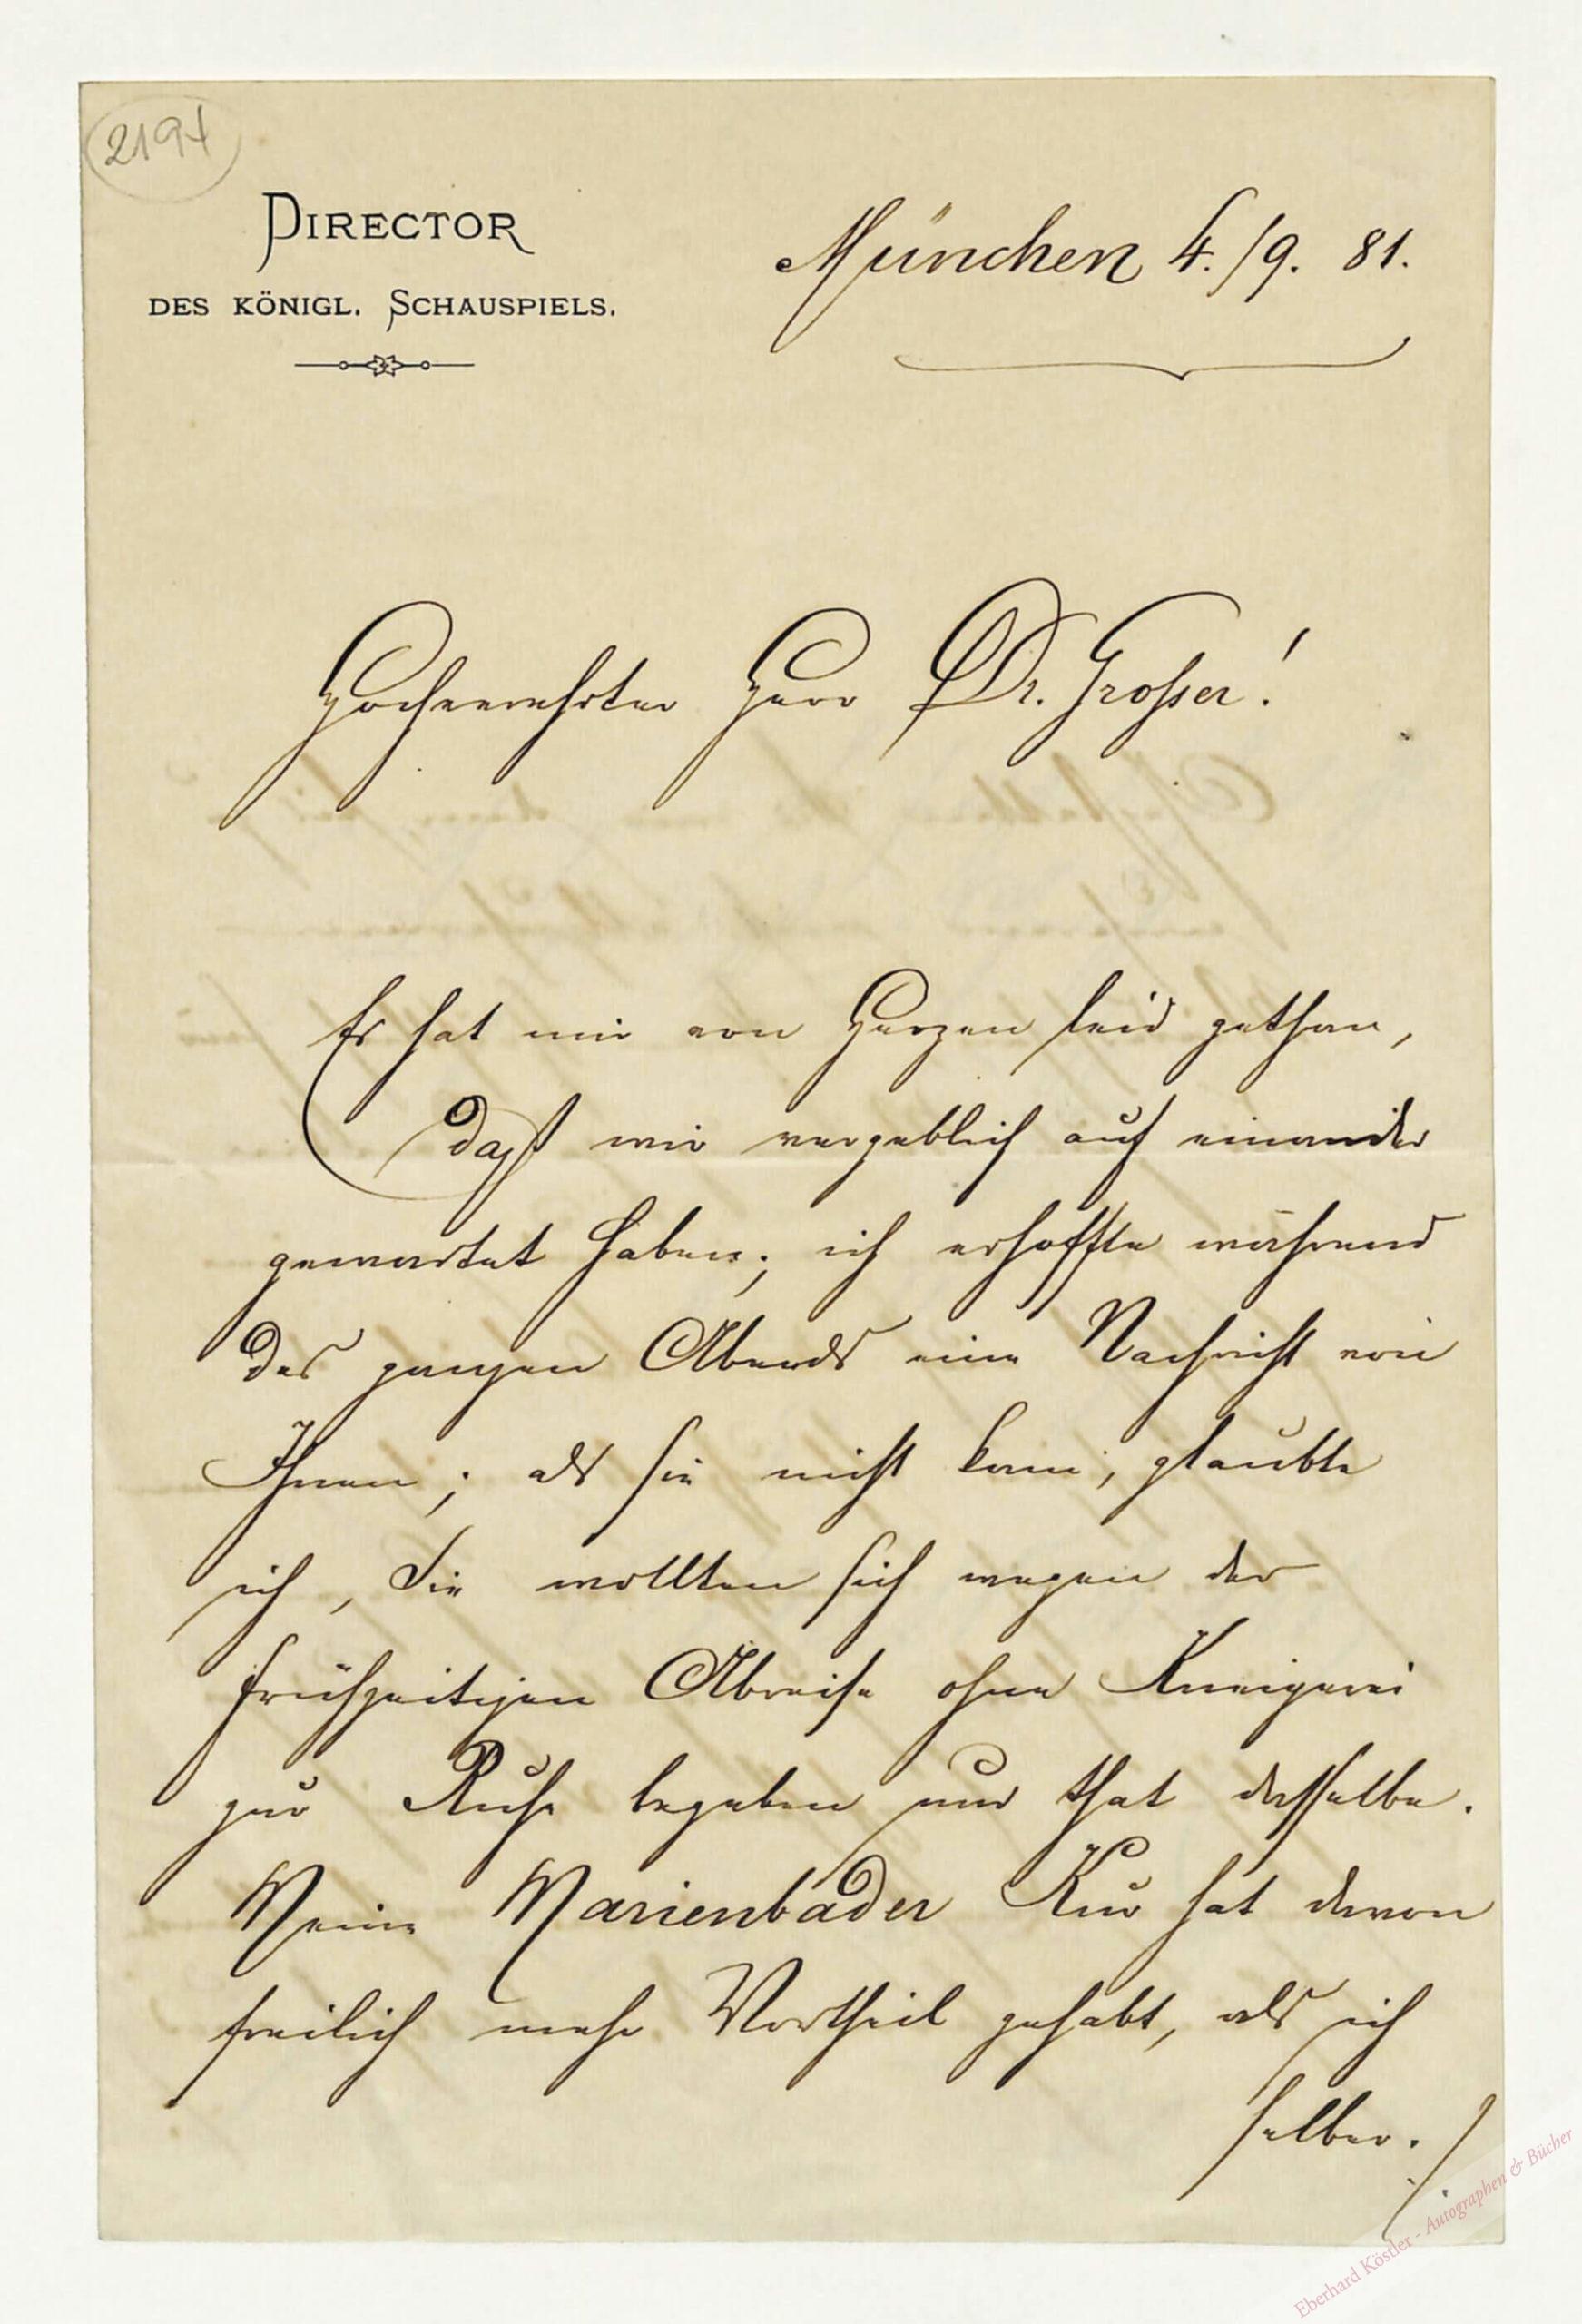 2194
DIRECTOR
DES KÖNIGL. SCHAUSPIELS.
München 4./9. 81.
Hochverehrter Herr Dr. Grosser!
Es hat mir von Herzen leid gethan,
daß wir vergeblich auf einander
gewartet haben; ich erhoffte während
des ganzen Abends eine Nachricht von
Ihnen; als sie nicht kam, glaubte
ich, Sie wollten sich wegen der
frühzeitigen Abreise ohne Kneiperei
zur Ruhe begeben und that dasselbe.
Meine Marienbader Kur hat davon
freilich mehr Vortheil gehabt, als ich
selber. ./.
Eberhard Köstler - Autographen & Bücher